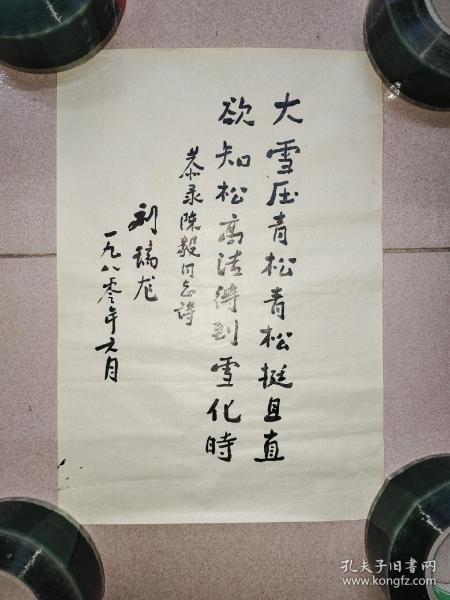 大雪压青松青松挺且直
欲知松高洁待到雪化時
恭录陈毅同志诗
刘瑞龙
一九八零年六月
孔夫子旧书网
www.kongfz.com